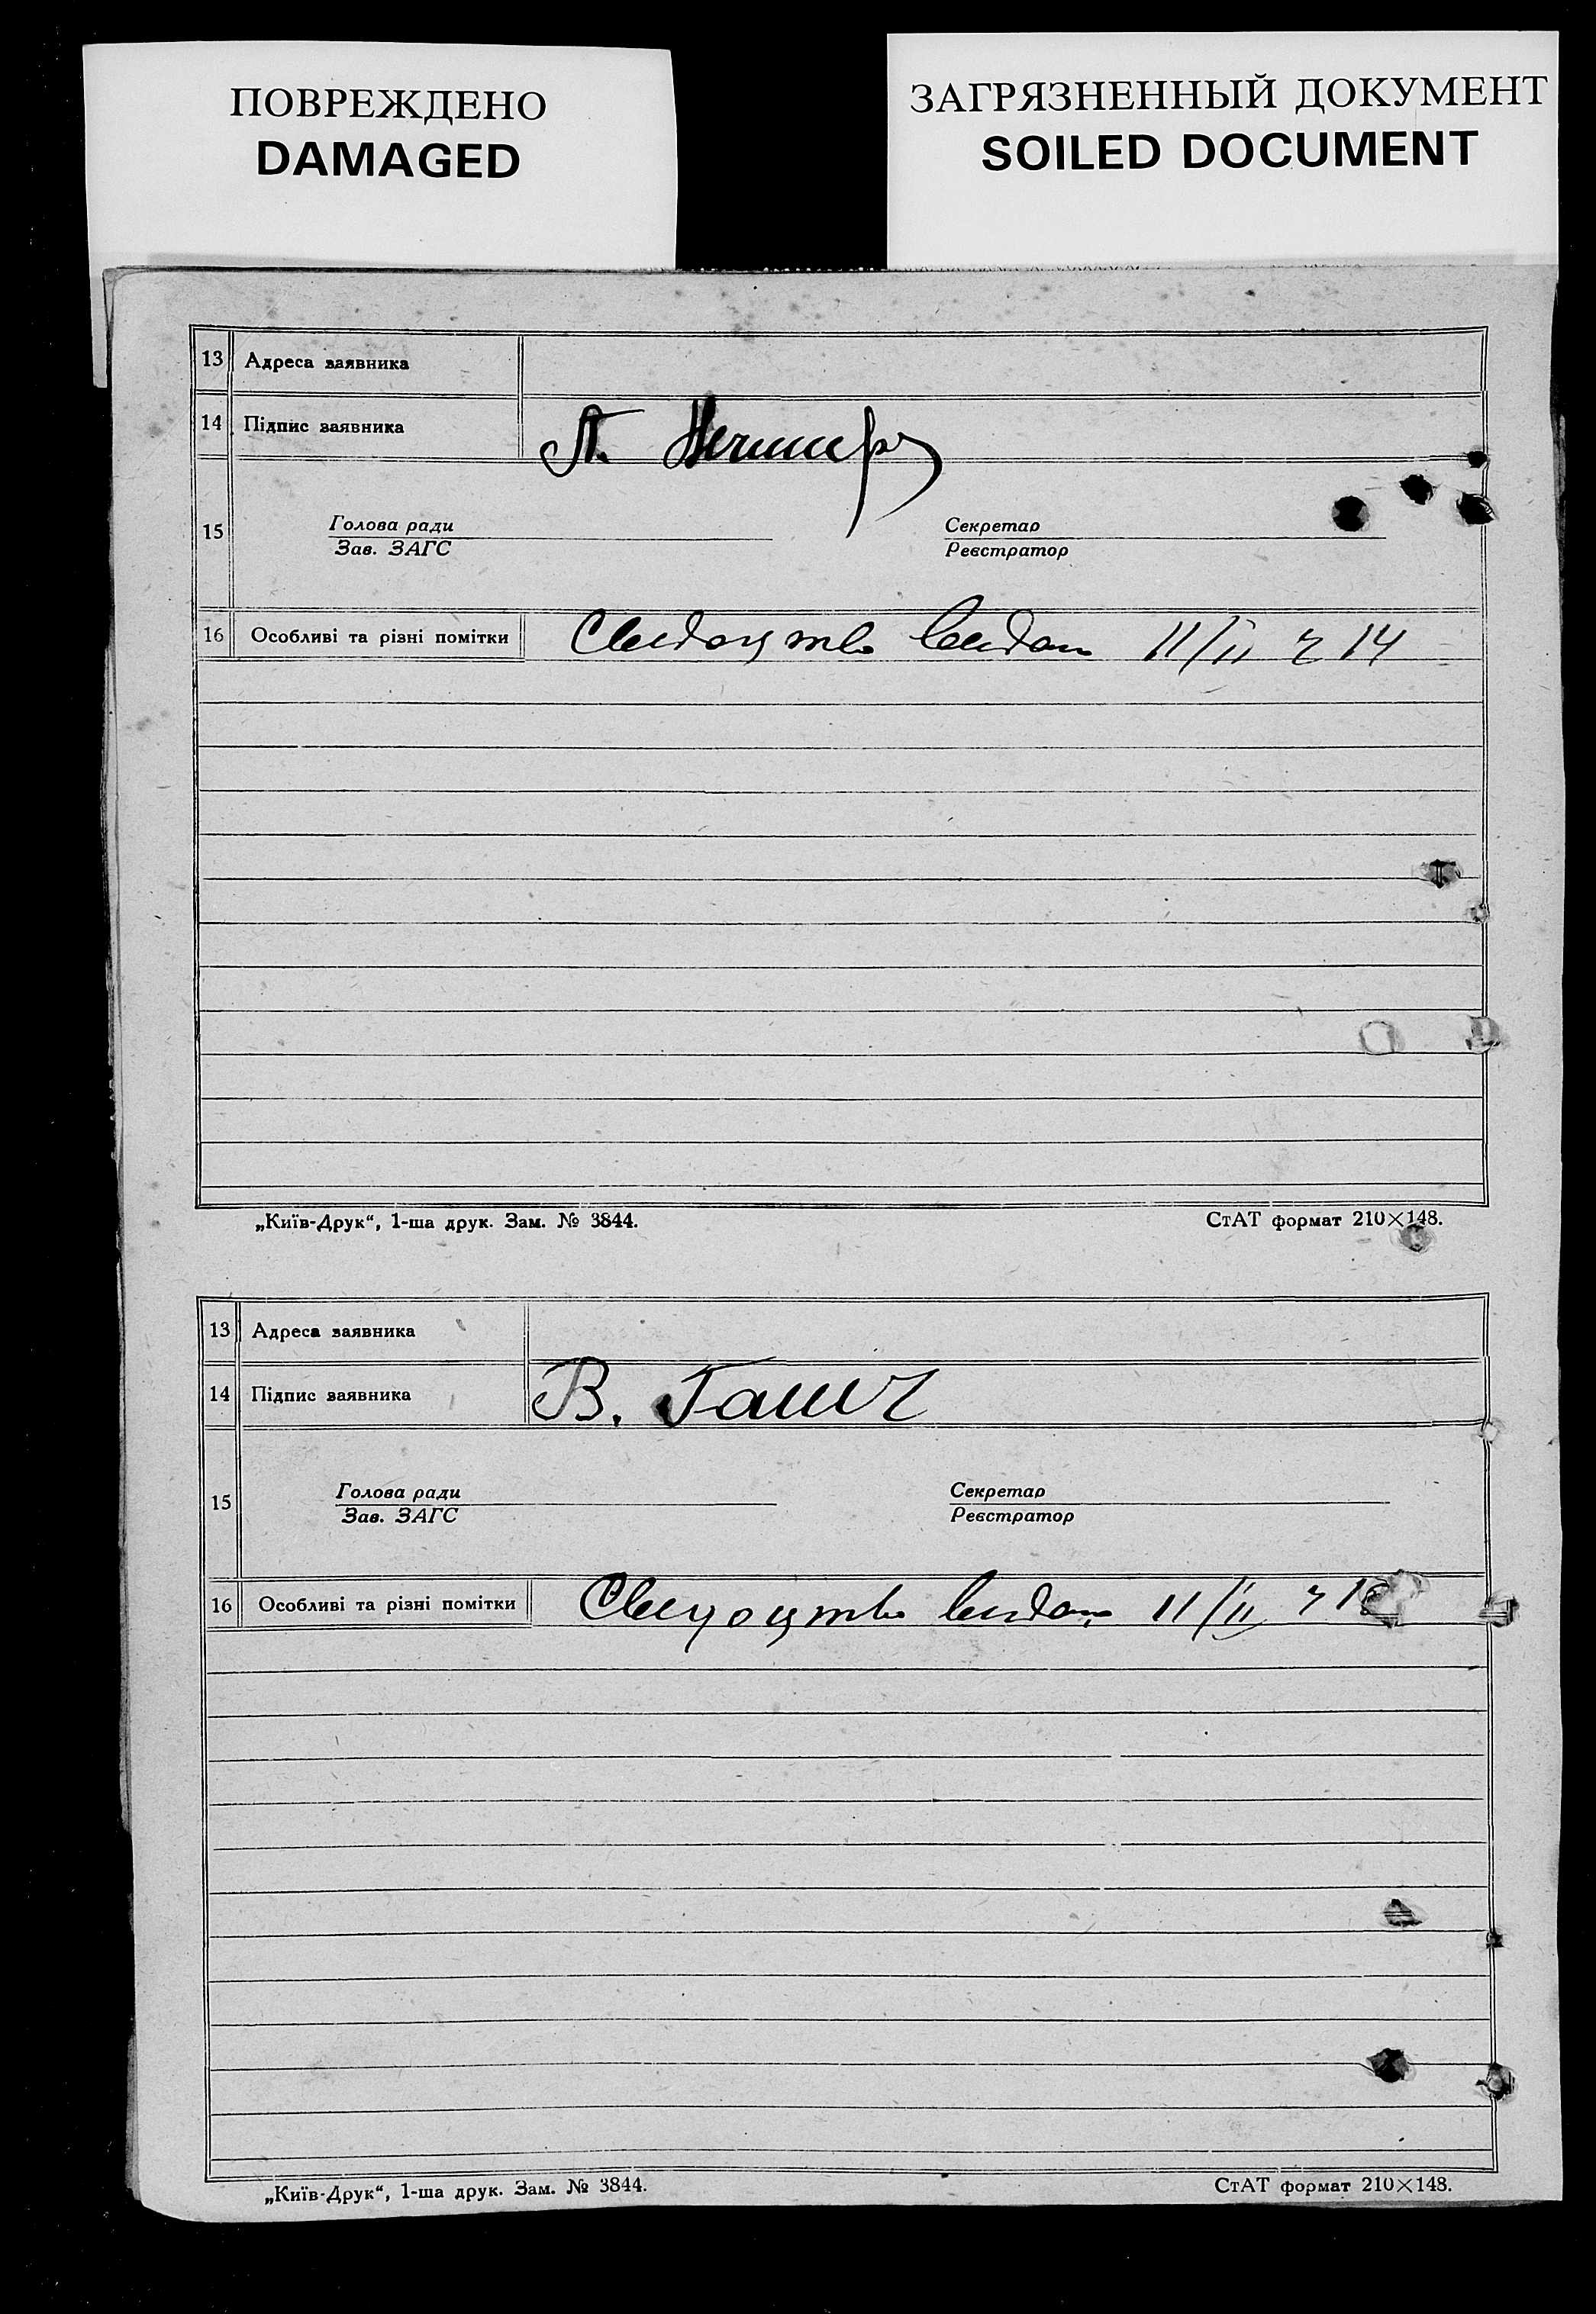 ПОВРЕЖДЕНО
DAMAGED
ЗАГРЯЗНЕННЫЙ ДОКУМЕНТ
SOILED DOCUMENT
13 Адреса заявника
14 Підпис заявника
15 Голова ради Секретар
Зав. ЗАГС Реєстратор
16 Особливі та різні помітки Свидоцтво видан 11/II 14
„Київ-Друк“, 1-ша друк. Зам. № 3844. СтАТ формат 210×148.
13 Адреса заявника
14 Підпис заявника В. Гашч
15 Голова ради Секретар
Зав. ЗАГС Реєстратор
16 Особливі та різні помітки Свидоцтво видан 11/II
„Київ-Друк“, 1-ша друк. Зам. № 3844. СтАТ формат 210×148.